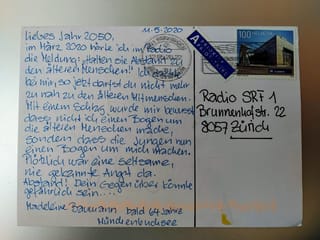 11-5-2020
Liebes Jahr 2050,
im März 2020 hörte ich im Radio
die Meldung: "Halten Sie Abstand zu
den älteren Menschen!" Ich dachte
bei mir, so jetzt darfst du nicht mehr
zu nah zu den älteren Mitmenschen.
Mit einem Schlag wurde mir bewusst
dass nicht ich einen Bogen um
die älteren Menschen mache,
sondern dass die Jungen nun
einen Bogen um mich machen.
Plötzlich war eine seltsame,
nie gekannte Angst da.
Abstand! Dein Gegenüber könnte
gefährlich sein....
Madeleine Baumann bald 64 Jahre
Münchenbuchsee
100 HELVETIA
Radio SRF 1
Brunnenhofstr. 22
8057 Zürich